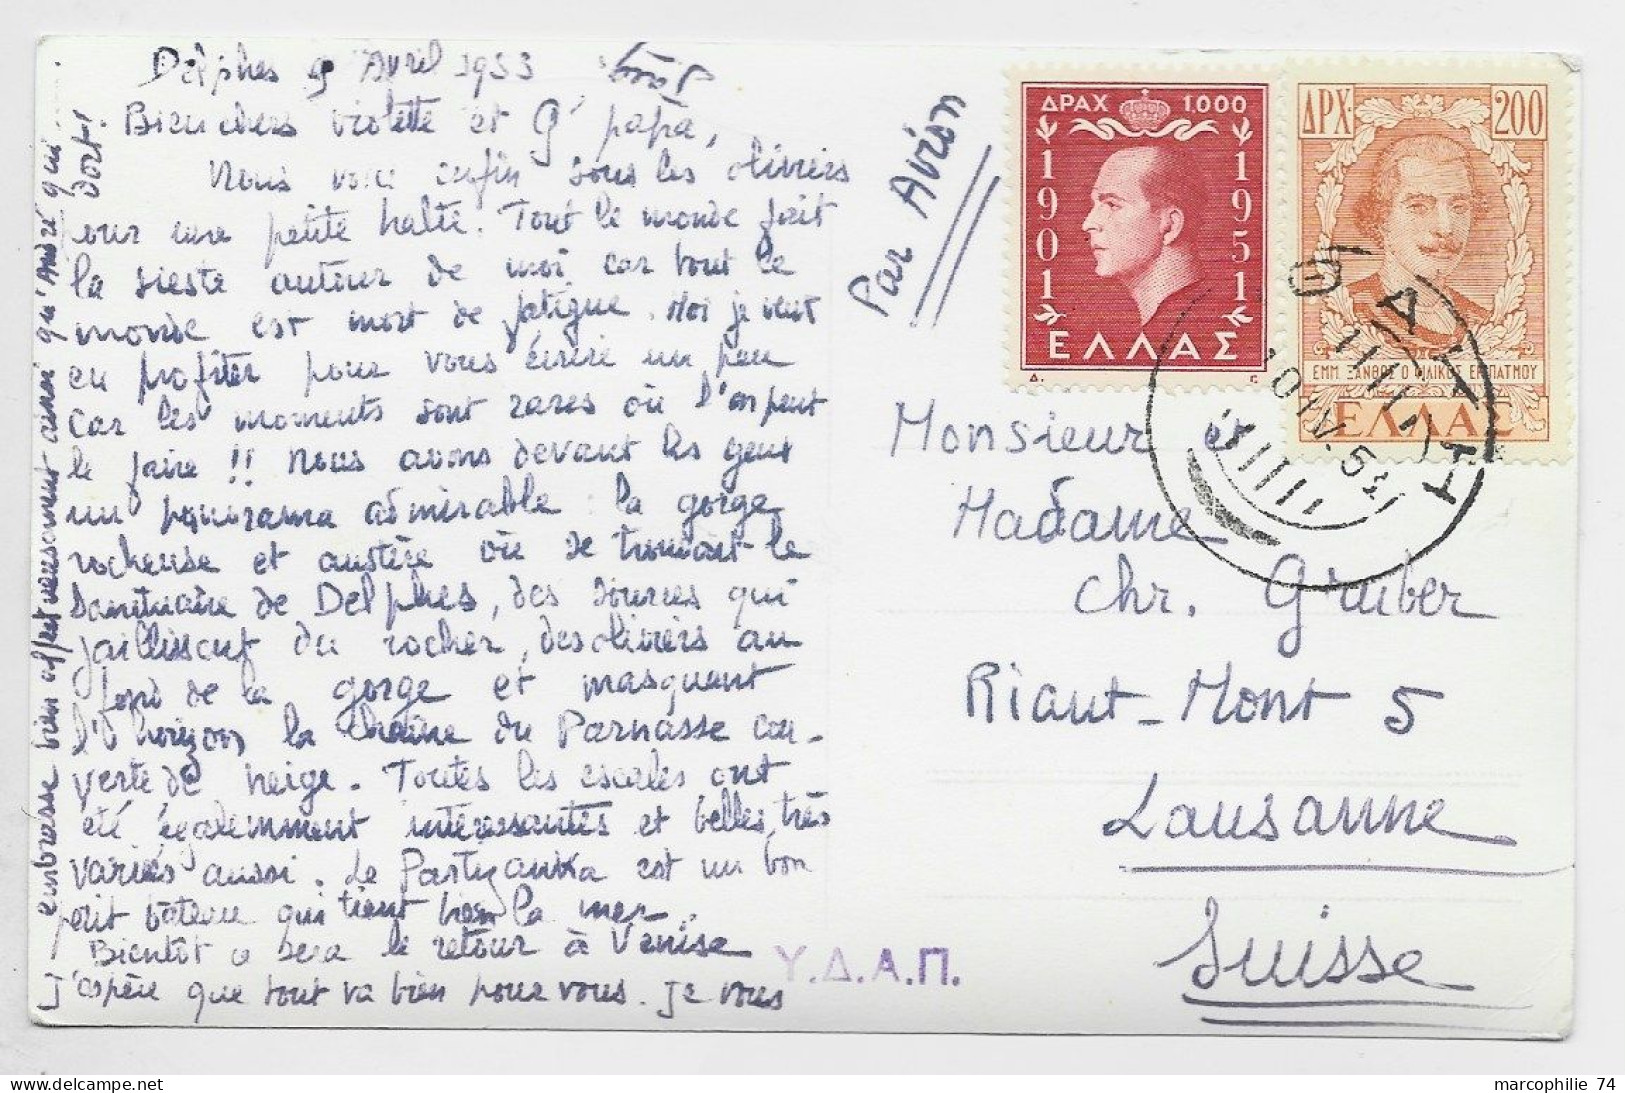 Delphes 9 Avril 1953
Bien chers Violette et Gd papa,
Nous voici enfin sous les oliviers
pour une petite halte. Tout le monde fait
la sieste autour de moi car tout le
monde est mort de fatigue. Moi je veux
en profiter pour vous écrire un peu
car les moments sont rares où l'on peut
le faire !! Nous avons devant les yeux
un panorama admirable : la gorge
rocheuse et austère où se trouvait le
Sanctuaire de Delphes, des sources qui
jaillissent du rocher, des oliviers au
fond de la gorge et masquant
l'horizon la chaîne du Parnasse cou-
verte de neige. Toutes les escales ont
été égalemment intéressantes et belles, très
variés aussi. Le Partizanka est un bon
petit bateau qui tient bien la mer.
Bientôt ce sera le retour à Venise
J'espère que tout va bien pour vous. Je vous
embrasse bien affectueusement ainsi qu'André qui
dort !
Par Avion
ΔΡΑΧ 1.000
1901 1951
ΕΛΛΑΣ
Δ. C.
ΔΡΧ. 200
ΕΜΜ ΞΑΝΘΟΣ Ο ΦΙΛΙΚΟΣ ΕΚ ΠΑΤΜΟΥ
ΕΛΛΑΣ
10 IV. 53
Monsieur et
Madame
Chr. Gruber
Riant-Mont 5
Lausanne
Suisse
Υ.Δ.Α.Π.
marcophilie 74